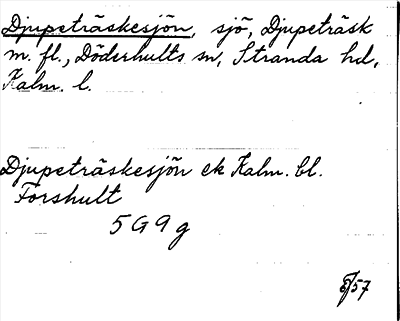 Djupeträskesjön, sjö, Djupeträsk
m. fl., Döderhults sn, Stranda hd,
Kalm. l.
Djupeträskesjön ek Kalm. bl.
Forshult
5 G 9 g
/57